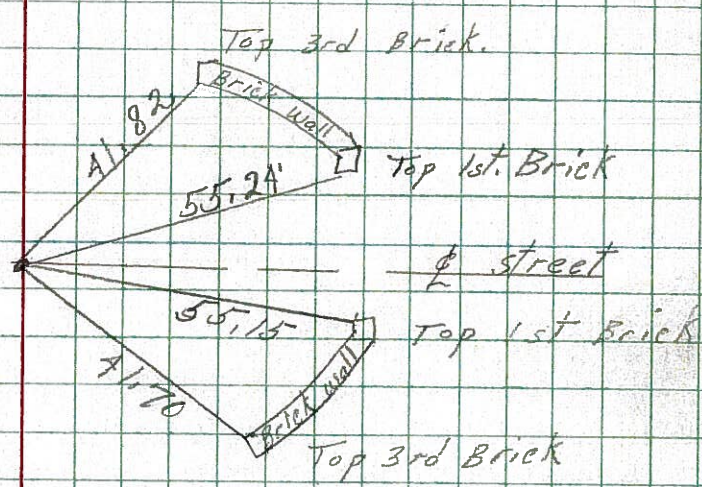 Top 3rd Brick.
Brick Wall
41.82
Top 1st. Brick
55.24'
℄ street
55.15
Top 1st Brick
41.70
Brick wall
Top 3rd Brick